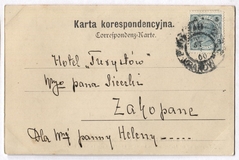 Karta korespondencyjna.
Correspondenz-Karte.
Hotel „Turystów"
Wgo pana Sieczki
Zakopane
Dla panny Heleny -----